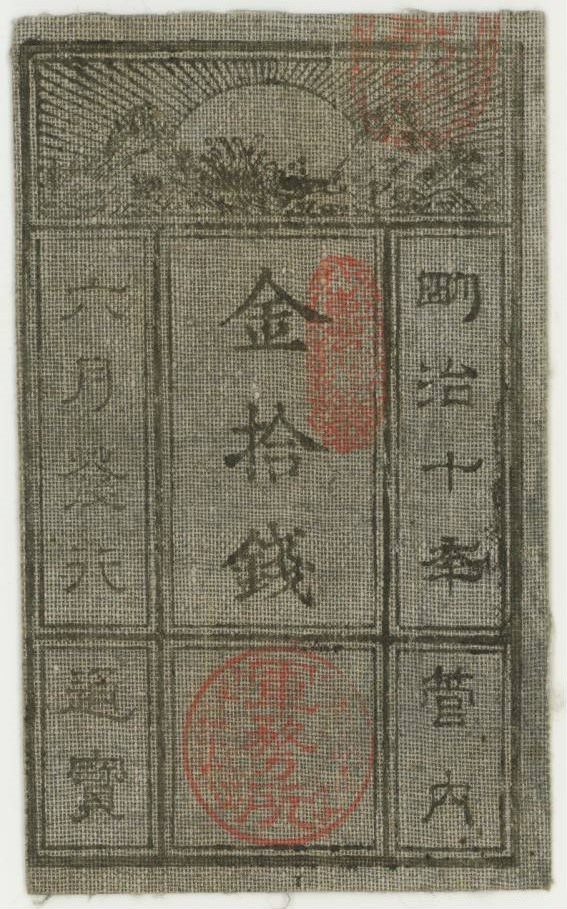 明治十年
六月發行
金拾錢
管内
通寶
軍務所